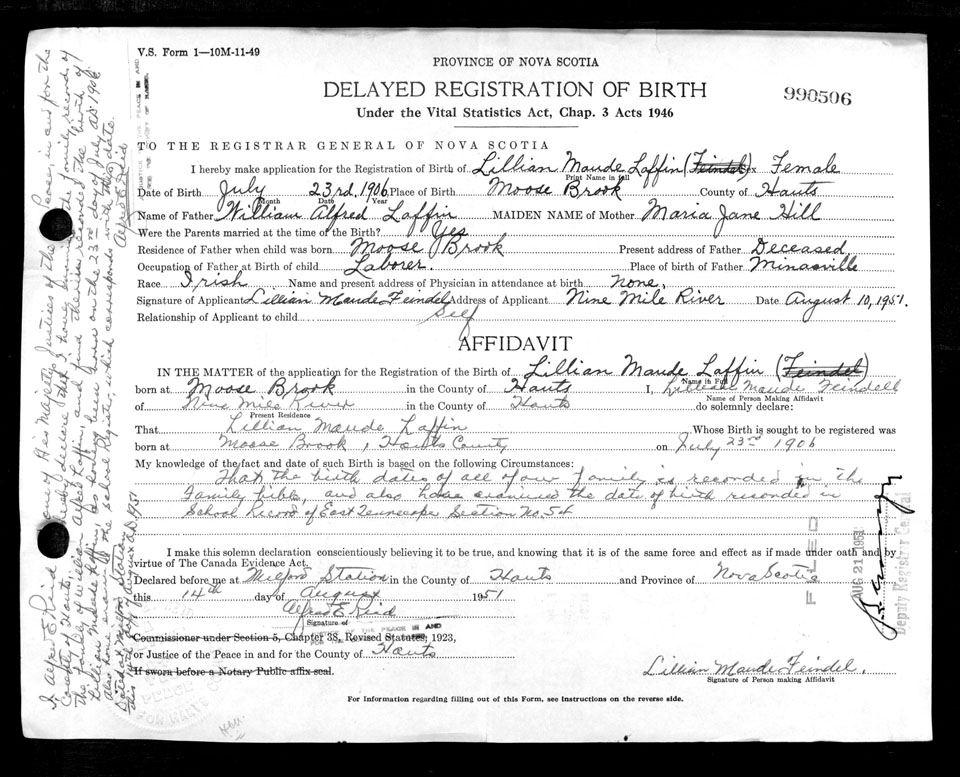 V.S. Form 1—10M-11-49
PROVINCE OF NOVA SCOTIA
DELAYED REGISTRATION OF BIRTH
990506
Under the Vital Statistics Act, Chap. 3 Acts 1946
TO THE REGISTRAR GENERAL OF NOVA SCOTIA
I hereby make application for the Registration of Birth of Lillian Maude Laffin (Feindel) Sex Female
Print Name in full
Date of Birth July 23rd. 1906 Place of Birth Moose Brook County of Hants
Month Date Year
Name of Father William Alfred Laffin MAIDEN NAME of Mother Maria Jane Hill
Were the Parents married at the time of the Birth? Yes
Residence of Father when child was born Moose Brook Present address of Father Deceased
Occupation of Father at Birth of child Laborer. Place of birth of Father Minasville
Race Irish Name and present address of Physician in attendance at birth None.
Signature of Applicant Lillian Maude Feindel Address of Applicant Nine Mile River Date August 10, 1951.
Relationship of Applicant to child Self
AFFIDAVIT
IN THE MATTER of the application for the Registration of the Birth of Lillian Maude Laffin (Feindel)
Name in Full
born at Moose Brook in the County of Hants I, Lillian Maude Feindell
Name of Person Making Affidavit
of Nine Mile River in the County of Hants do solemnly declare:
Present Residence
That Lillian Maude Laffin Whose Birth is sought to be registered was
born at Moose Brook, Hants County on July 23rd 1906
My knowledge of the fact and date of such Birth is based on the following Circumstances:
That the birth dates of all of our family is recorded in the
Family bible, and also have examined the date of birth recorded in
School Record of East Tennecape Section No. 54
I make this solemn declaration conscientiously believing it to be true, and knowing that it is of the same force and effect as if made under oath and by
virtue of The Canada Evidence Act.
Declared before me at Milford Station in the County of Hants and Province of Nova Scotia
this 14th day of August 1951
Alfred E Reid
Signature of
Commissioner under Section 5, Chapter 38, Revised Statutes, 1923,
or Justice of the Peace in and for the County of Hants
If sworn before a Notary Public affix seal.
Lillian Maude Feindel.
Signature of Person making Affidavit
For Information regarding filling out of this Form, see instructions on the reverse side.
FILED
AUG 21 1951
Deputy Registrar General
I Alfred E Reid one of His Majestys Justices of the Peace in and for the
County of Hants, hereby declare that I have examined the family records of
the family of William Alfred Laffin, and find therein recorded the birth of
Lillian Maude Laffin as having been born on the 23rd day of July AD 1906
also have examined the school Register which corresponds with this date.
Dated at Milford Station
this 14th day of August AD 1951
Alfred E Reid